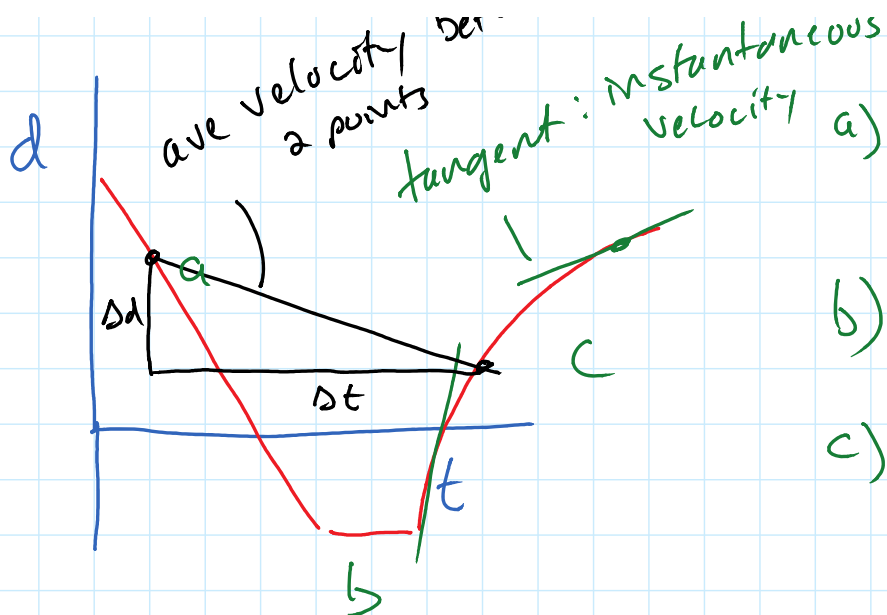 ave velocity
2 points
tangent: instantaneous
velocity
d
a)
a
Δd
b)
Δt
c
c)
t
b